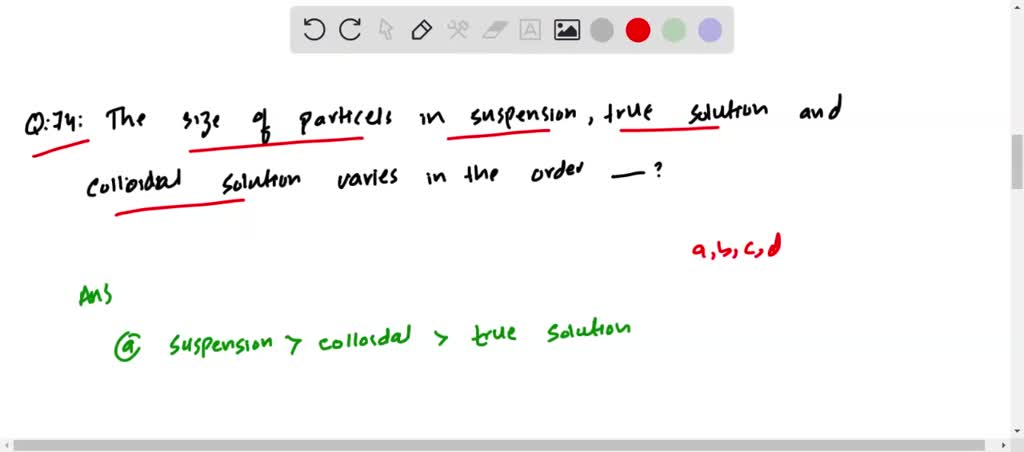 Q:74: The size of particels in suspension, true solution and
colloidal solution varies in the order — ?
a, b, c, d
Ans
ⓐ suspension > colloidal > true solution